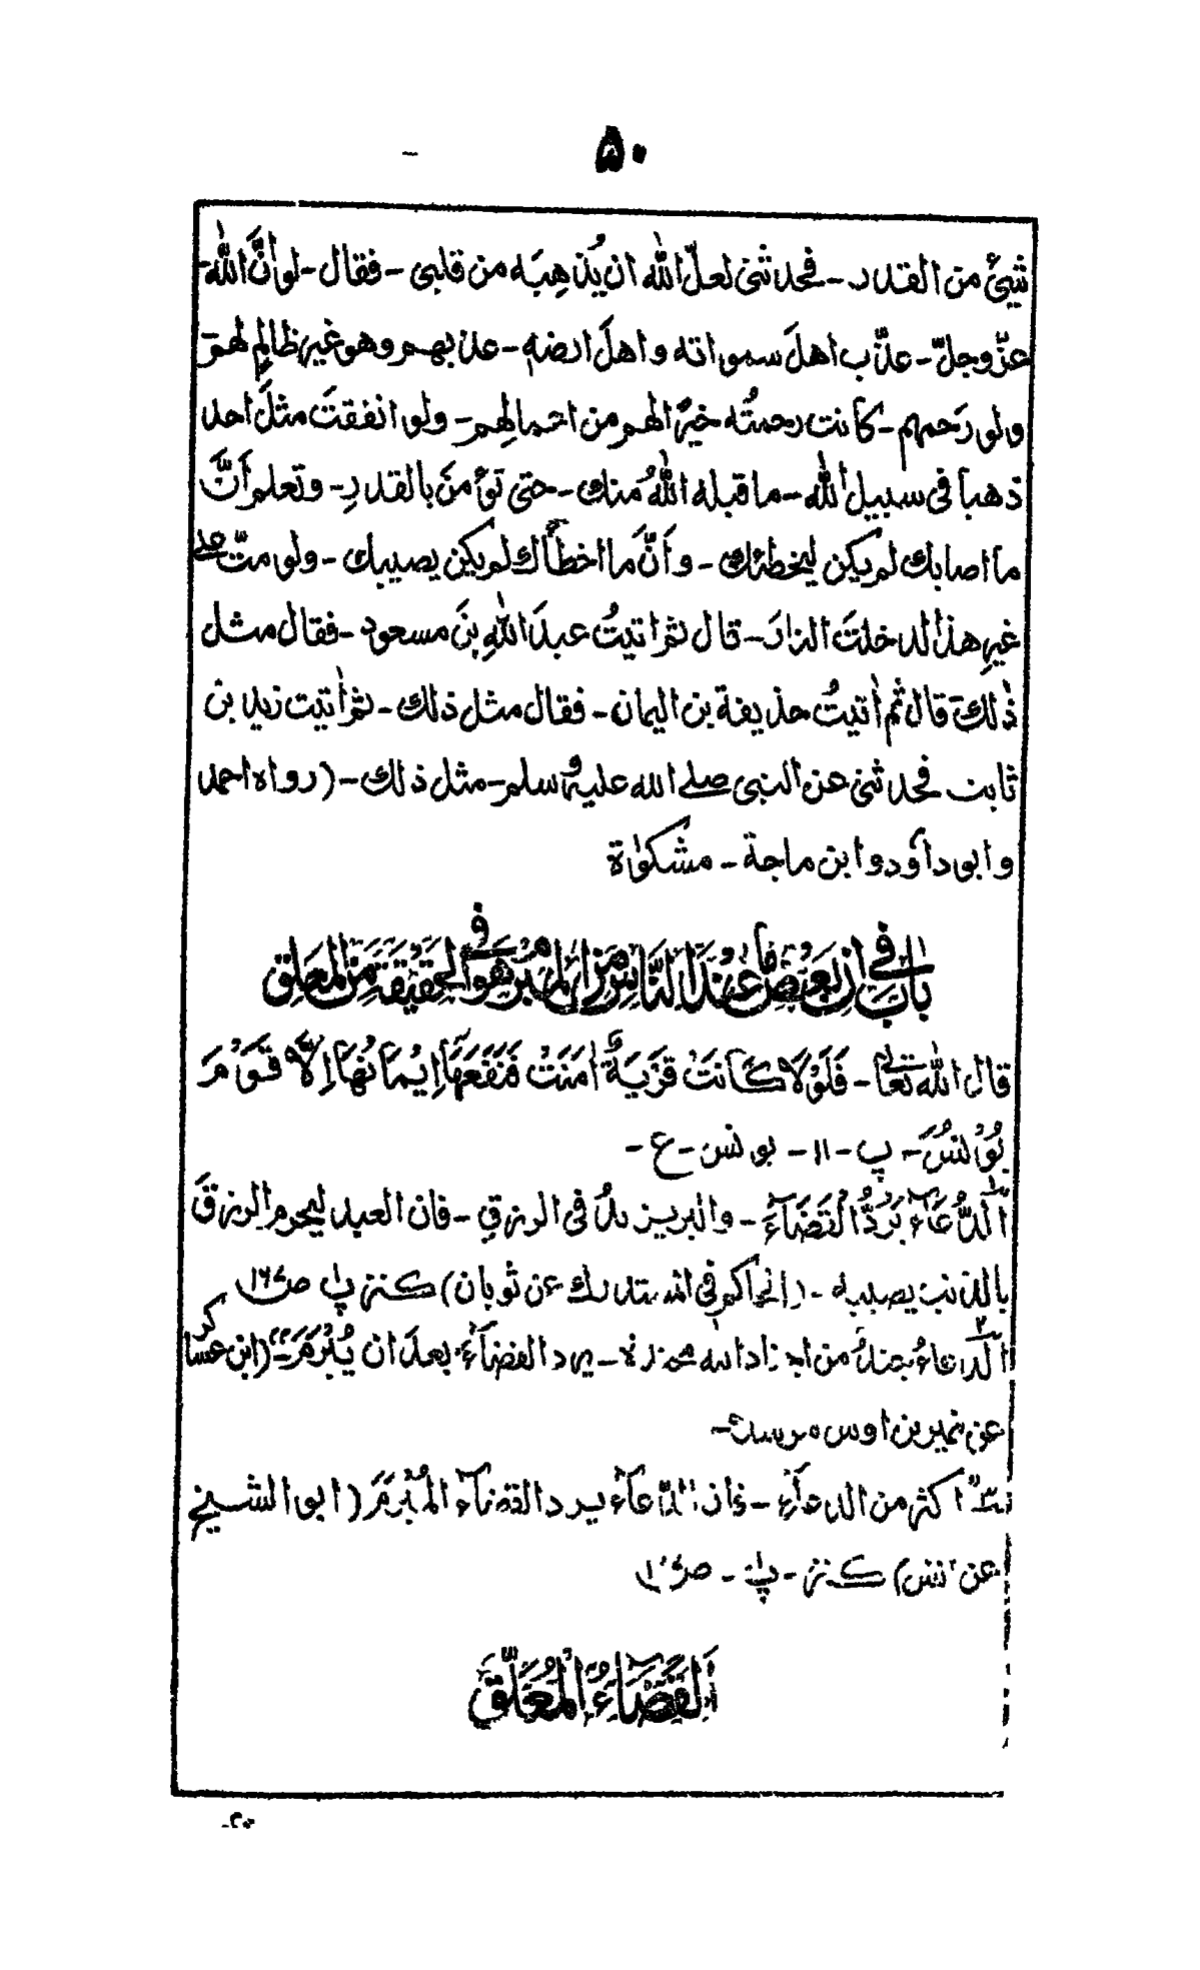 ۵۰
شیئ من القدر ـ فحدثنی لعلّ الله ان یُذهِبَه من قلبی ـ فقال ـ لو أنَّ اللهَ
عزّ وجلّ ـ عذّب اهلَ سمواته و اهلَ ارضهِ ـ عذبهم وهو غیر ظالمٍ لهم
ولو رَحمهم ـ کانت رحمتُه خیرٌ الهم من اعمالِهم ـ ولو انفقتَ مثلَ احد
ذهباً فی سبیل الله ـ ما قبله اللهُ منك ـ حتی تؤمنَ بالقدرِ ـ وتعلم أنَّ
ما اصابك لم یکن لیخطئك ـ و أنَّ ما اخطأك لم یکن یصیبك ـ ولو متّ علی
غیرِ هذا لدخلتَ النارَ ـ قال ثم اتیتُ عبدَ اللهِ بنَ مسعود ـ فقال مثل
ذٰلك قال ثم أتیتُ حذیفة بن الیمان ـ فقال مثل ذلك ـ ثم أتیت زید بن
ثابت فحدثنی عن النبی صلے الله علیه وسلم ـ مثل ذلك ـ (رواه احمد
و ابو داؤد و ابن ماجة ـ مشکوٰة
بابٌ فی ان بعض ما عند الناس من المبرم هو فی الحقیقة من المعلق
قال الله تعالیٰ ـ فَلَوْلَا كَانَتْ قَرْیَةٌ اٰمَنَتْ فَنَفَعَهَا اِیْمَانُهَا اِلَّا قَوْمَ
یُوْنُسَ ـ پ ـ ۱۱ ـ یونس ـ ع ـ
الدُّعَاءُ یَرُدُّ الْقَضَآءَ ـ والبر یزید فی الرزقِ ـ فان العبد لیحرم الرزقَ
بالذنب یصیبه ـ (الحاکم فی المستدرك عن ثوبان) کنز
الدعاءُ جندٌ من اجناد الله مجندة ـ یرد القضآءَ بعدَ ان یُبْرَمَ ـ (ابن عساکر
عن نمیر بن اوس مرسلا ـ
اکثر من الدعآء ـ فان الدعآء یرد القضآء المُبْرَمَ (ابو الشیخ
عن انس) کنز ـ
اَلقَضَآءُ الْمُعَلَّقُ